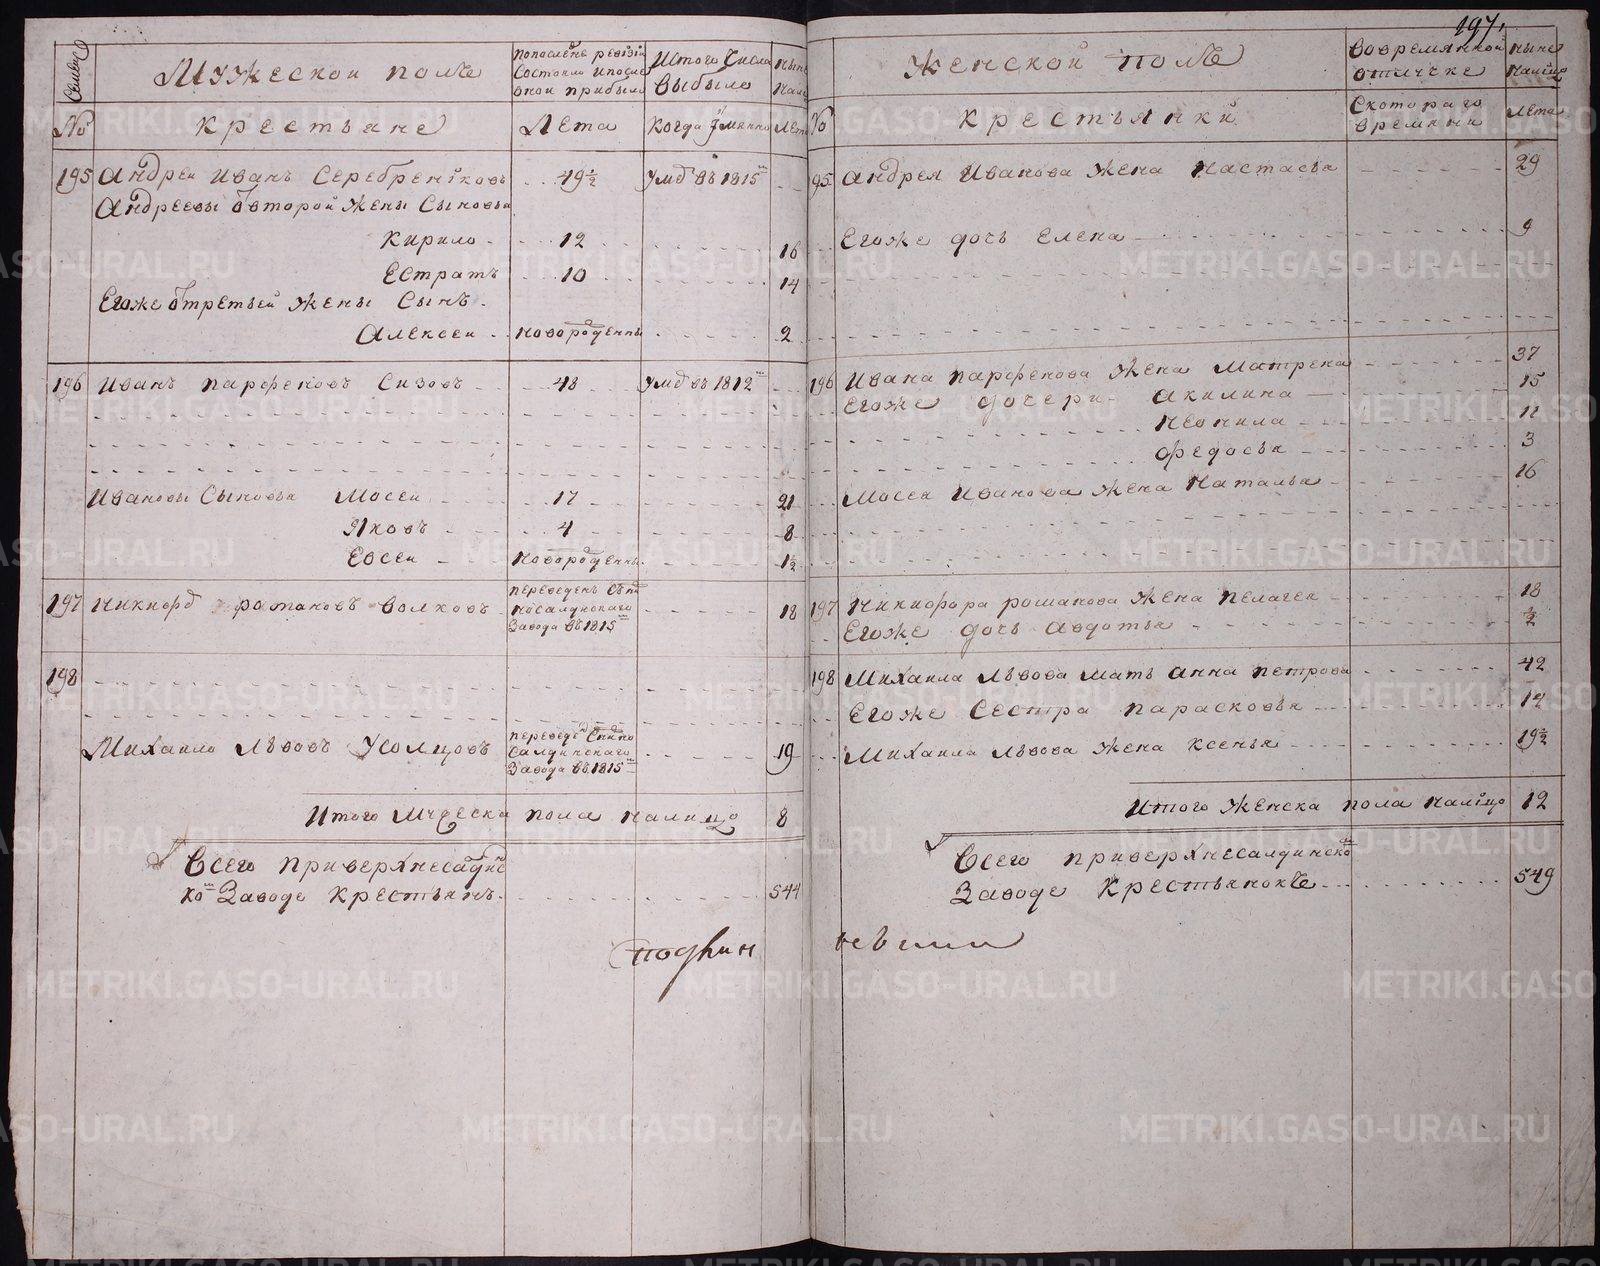 197.
Семьи
Мужеской полъ
попоследне ревизіи
Состояло ипосле
оной прибыло
Изтого Числа
Выбыло
ныне
Нали
№
крестьяне
Лета
Когда Імянно
Лета
195
Андреи Иванъ Серебрениковъ
49½
Умд въ 1815
Андреевы отвторой жены Сыновья
Кирило
12
16
Естратъ
10
14
Егоже отретьей жены Сынъ
Алексеи
новорожденны
2
196
Иванъ парфеновъ Сизовъ
48
Умд въ 1812
Ивановы Сыновья Мосеи
17
21
Яковъ
4
8
Евсеи
Новорожденны
1½
197
Никифор романовъ Волковъ
переведенъ
Салдинскаго
Завода въ 1815
18
198
Михаило Львовъ Усолцовъ
переведе
Салдинскаго
Завода въ 1815
19
Итого Мужеска пола налицо
8
Всего приверхнесалдинс
ко Заводе Крестьянъ
544
Женской полъ
Вовременной
отлучке
ныне
Налицо
№
крестьянки
Скотораго
времяни
Лета
95
Андрея Иванова жена Настасья
29
Егоже дочь Елена
9
196
Ивана парфенова жена Матрена
37
Егоже дочери Акилина
15
Неонила
11
Федосья
3
Мосея Иванова жена Наталья
16
197
Никифора романова жена пелагея
18
Егоже дочь Авдотья
½
198
Михаила Львова мать Анна петрова
42
Егоже Сестра парасковья
14
Михаила Львова жена Ксенья
19½
Итого Женска пола налицо
12
Всего приверхнесалдинско
Заводе Крестьянокъ
549
METRIKI.GASO-URAL.RU